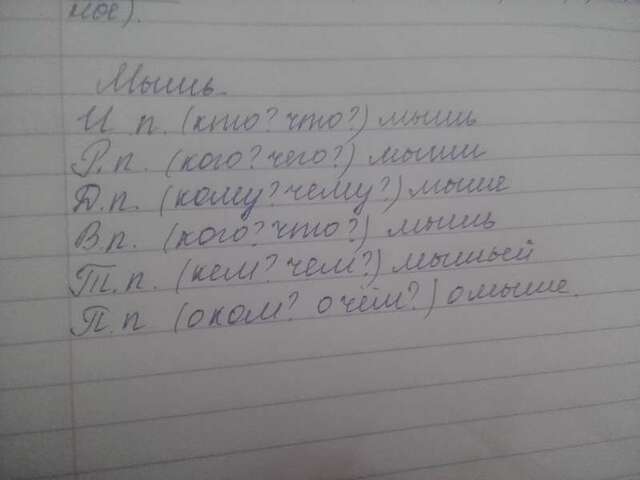 ное).
Мышь.
И.п. (кто? что?) мышь
Р.п. (кого? чего?) мыши
Д.п. (кому? чему?) мыше
В.п. (кого? что?) мышь
Т.п. (кем? чем?) мышьей
П.п. (о ком? о чём?) о мыше.